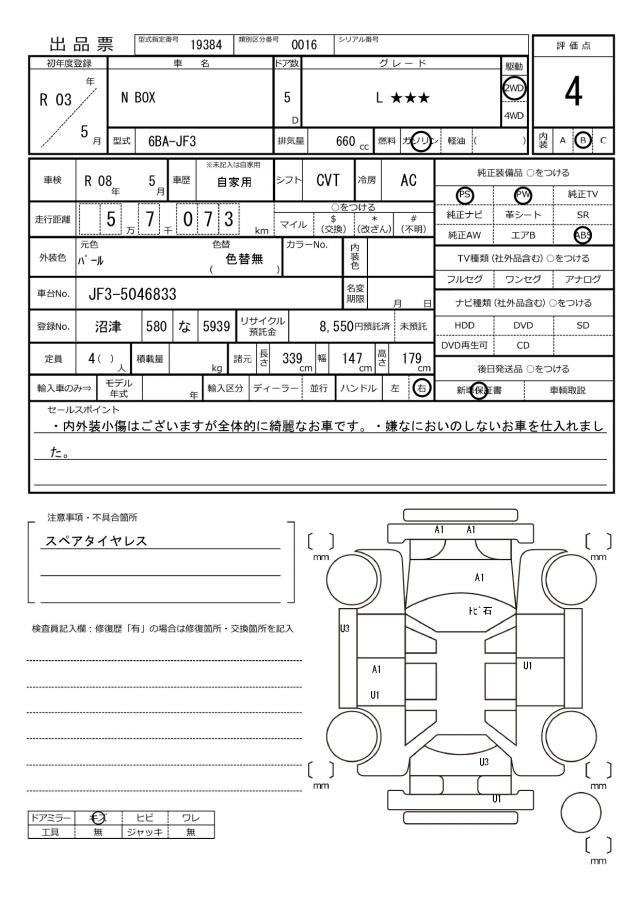 出品票 型式指定番号 19384 類別区分番号 0016 シリアル番号
評価点
初年度登録 車名 ドア数 グレード 駆動
R 03 年 / 5 月 N BOX 5 D L ★★★ 2WD 4WD
4
型式 6BA-JF3 排気量 660 cc 燃料 ガソリン 軽油 ( )
内装 A B C
車検 R 08 年 5 月 車歴 ※未記入は自家用 自家用 シフト CVT 冷房 AC
純正装備品 ○をつける
PS PW 純正TV
走行距離 5 万 7 千 0 7 3 km ○をつける
マイル $ (交換) * (改ざん) # (不明)
純正ナビ 革シート SR
純正AW エアB ABS
外装色 元色 パール 色替 ( 色替無 ) カラーNo. 内装色
TV種類 (社外品含む) ○をつける
フルセグ ワンセグ アナログ
車台No. JF3-5046833 名変期限 月 日
ナビ種類 (社外品含む) ○をつける
登録No. 沼津 580 な 5939 リサイクル預託金 8,550円預託済 未預託
HDD DVD SD
DVD再生可 CD
定員 4 ( ) 人 積載量 kg 諸元 長さ 339 cm 幅 147 cm 高さ 179 cm
後日発送品 ○をつける
輸入車のみ⇒ モデル年式 年 輸入区分 ディーラー 並行 ハンドル 左 右
新車保証書 車輌取説
セールスポイント
・内外装小傷はございますが全体的に綺麗なお車です。・嫌なにおいのしないお車を仕入れまし
た。
注意事項・不具合箇所
スペアタイヤレス
検査員記入欄：修復歴「有」の場合は修復箇所・交換箇所を記入
A1 A1
mm mm
A1
トビ石
U3
U1
A1
U1
U3
mm mm
U1
mm
ドアミラー キズ ヒビ ワレ
工具 無 ジャッキ 無